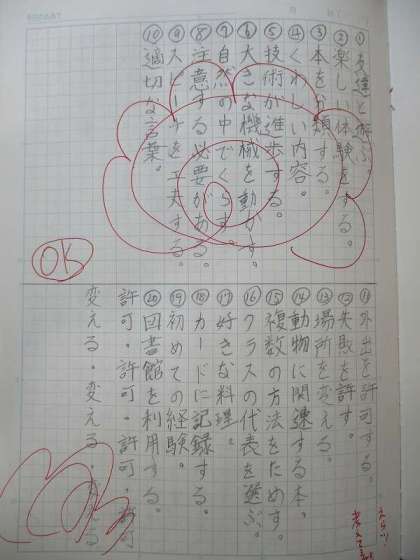 ①友達と遊ぶ。
②楽しい体験をする。
③本を分類する。
④くわしい内容。
⑤技術が進歩する。
⑥大きな機械を動かす。
⑦自然の中でくらす。
⑧注意する必要がある。
⑨スピーチを工夫する。
⑩適切な言葉。
OK
⑪外出を許可する。
⑫失敗を許す。
⑬場所を変える。
⑭動物に関連する本。
⑮複数の方法をためす。
⑯クラスの代表を選ぶ。
⑰好きな料理。
⑱カードに記録する。
⑲初めての経験。
⑳図書館を利用する。
許可・許可・許可・許可
変える・変える・変える